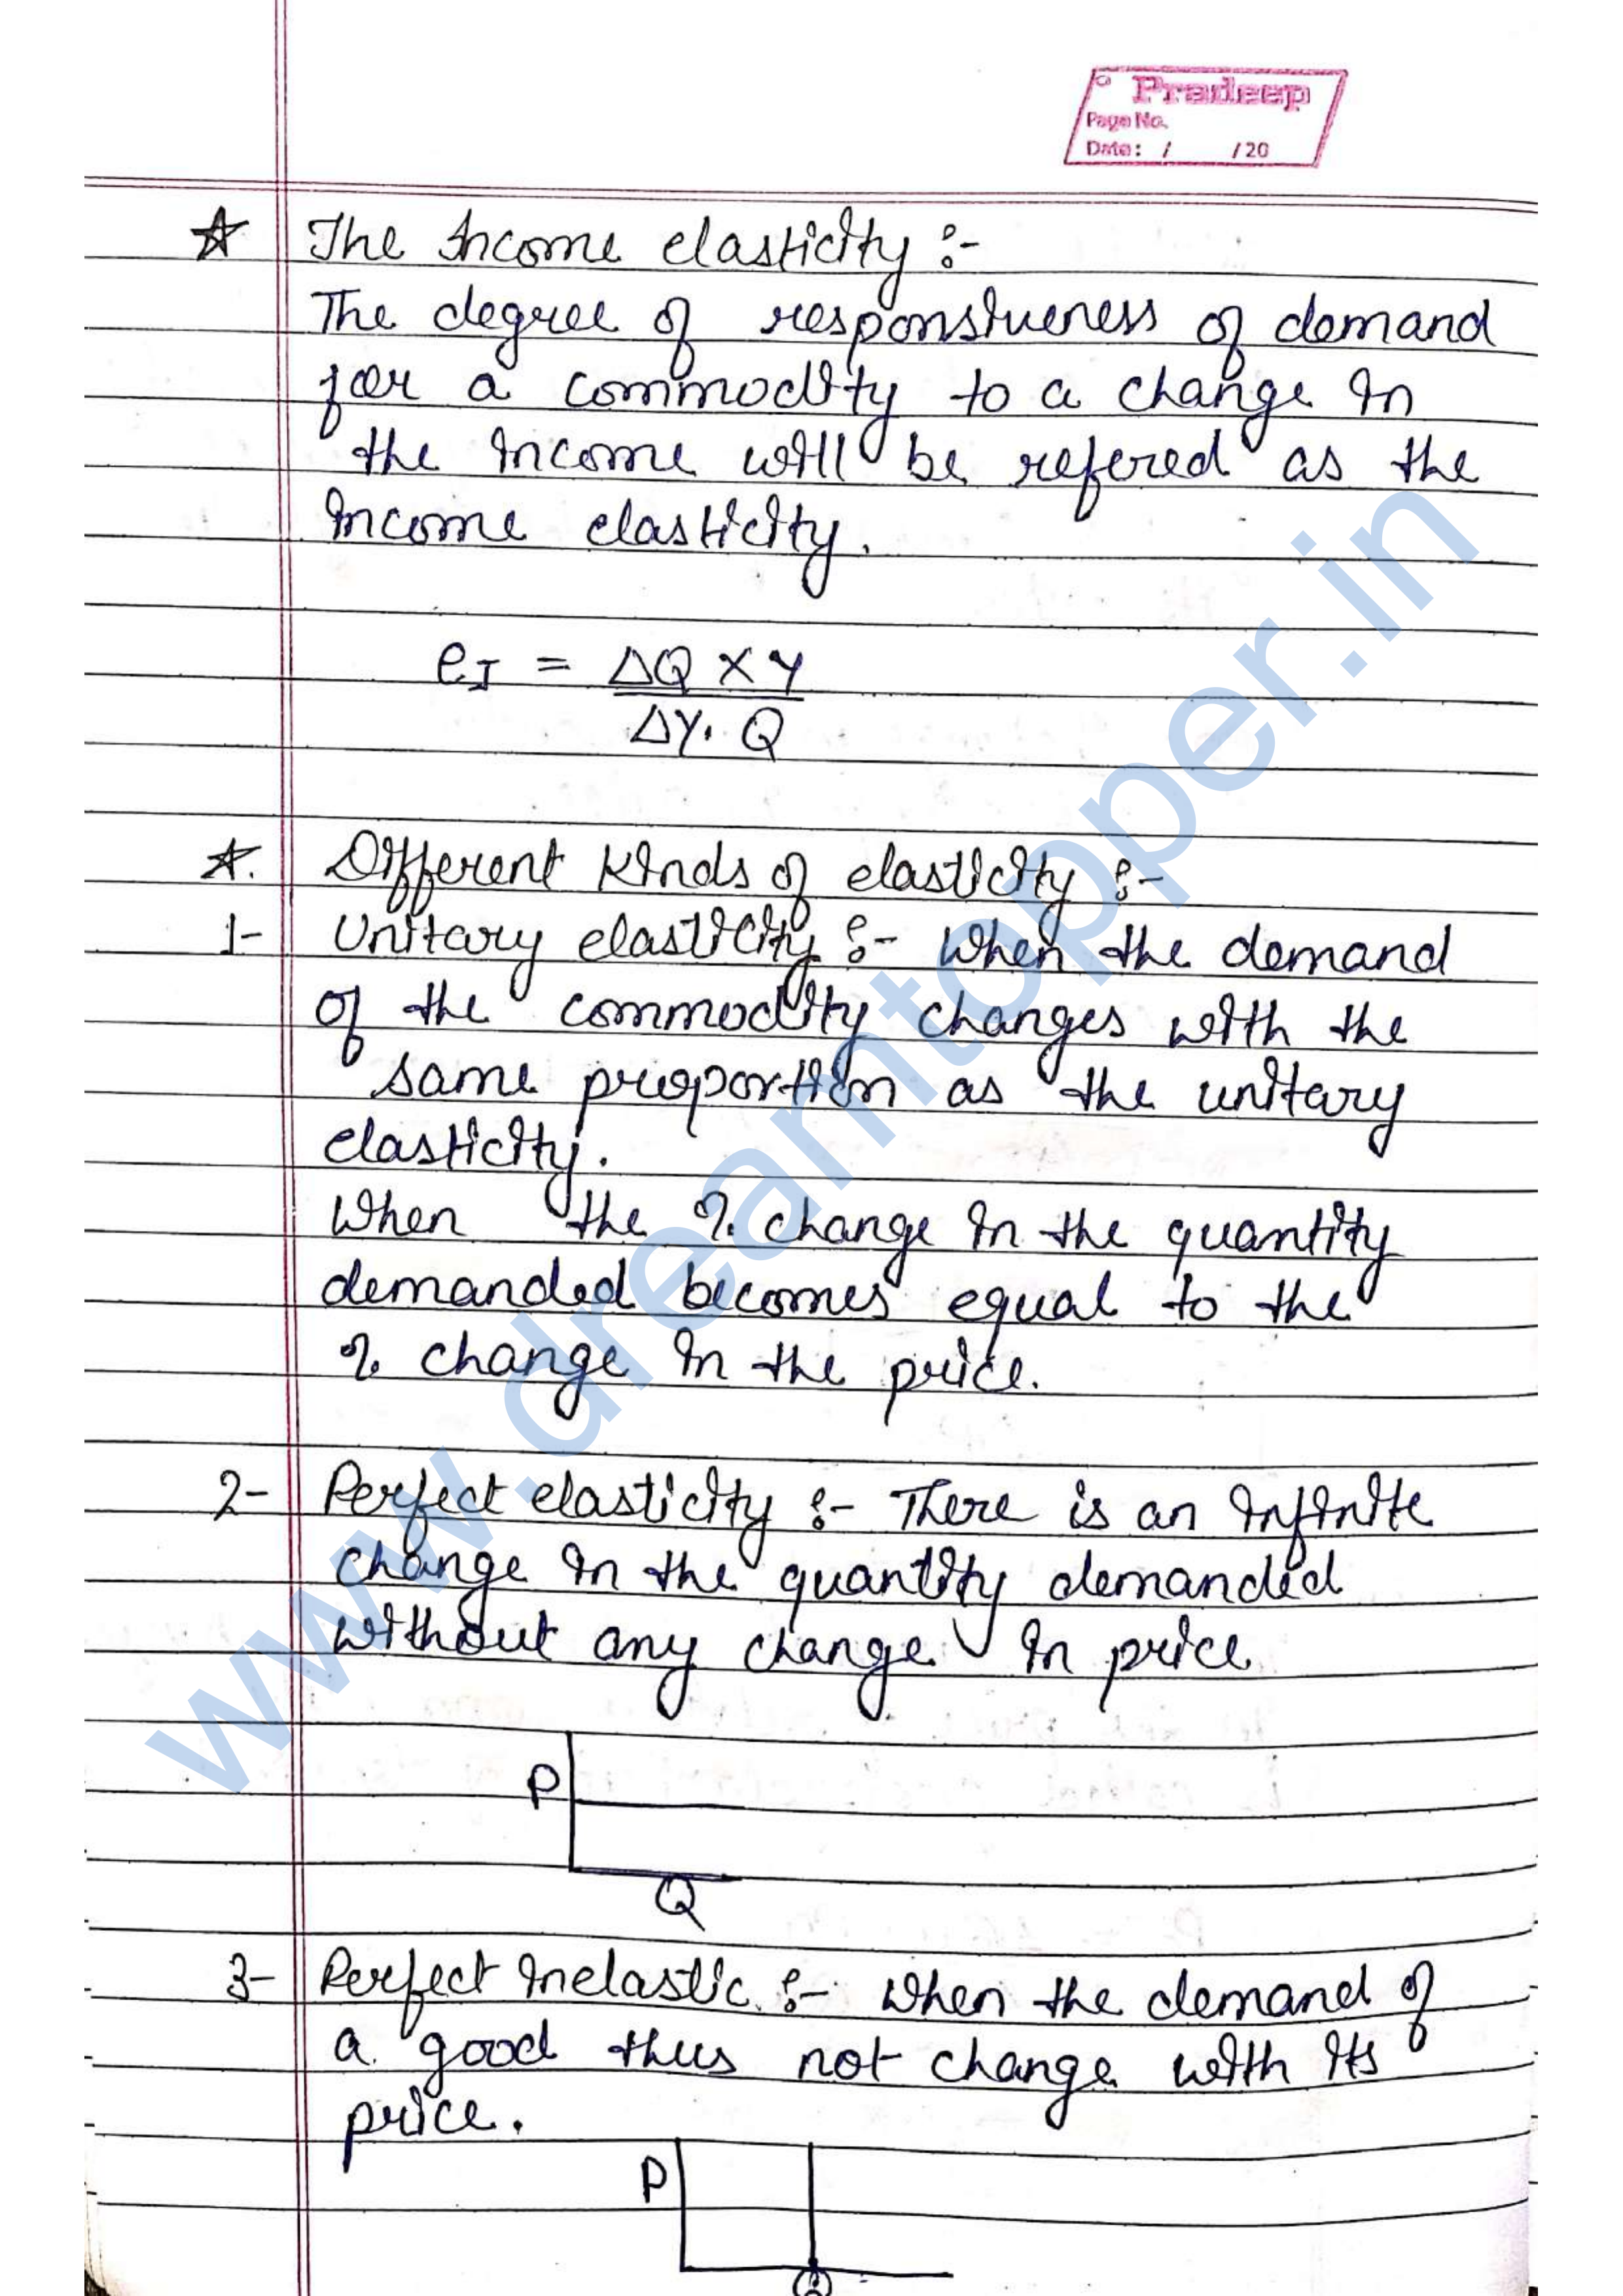 Pradeep
Page No.
Date: / /20
☆ The Income elasticity :-
The degree of responsiveness of demand
for a commodity to a change in
the income will be refered as the
income elasticity.
eI = ΔQ × Y
ΔY. Q
☆. Different kinds of elasticity :-
1- Unitary elasticity :- When the demand
of the commodity changes with the
same proportion as the unitary
elasticity.
When the % change in the quantity
demanded becomes equal to the
% change in the price.
2- Perfect elasticity :- There is an infinite
change in the quantity demanded
without any change in price
P
Q
3- Perfect inelastic :- When the demand of
a good thus not change with its
price.
P
Q
www.dreamtopper.in